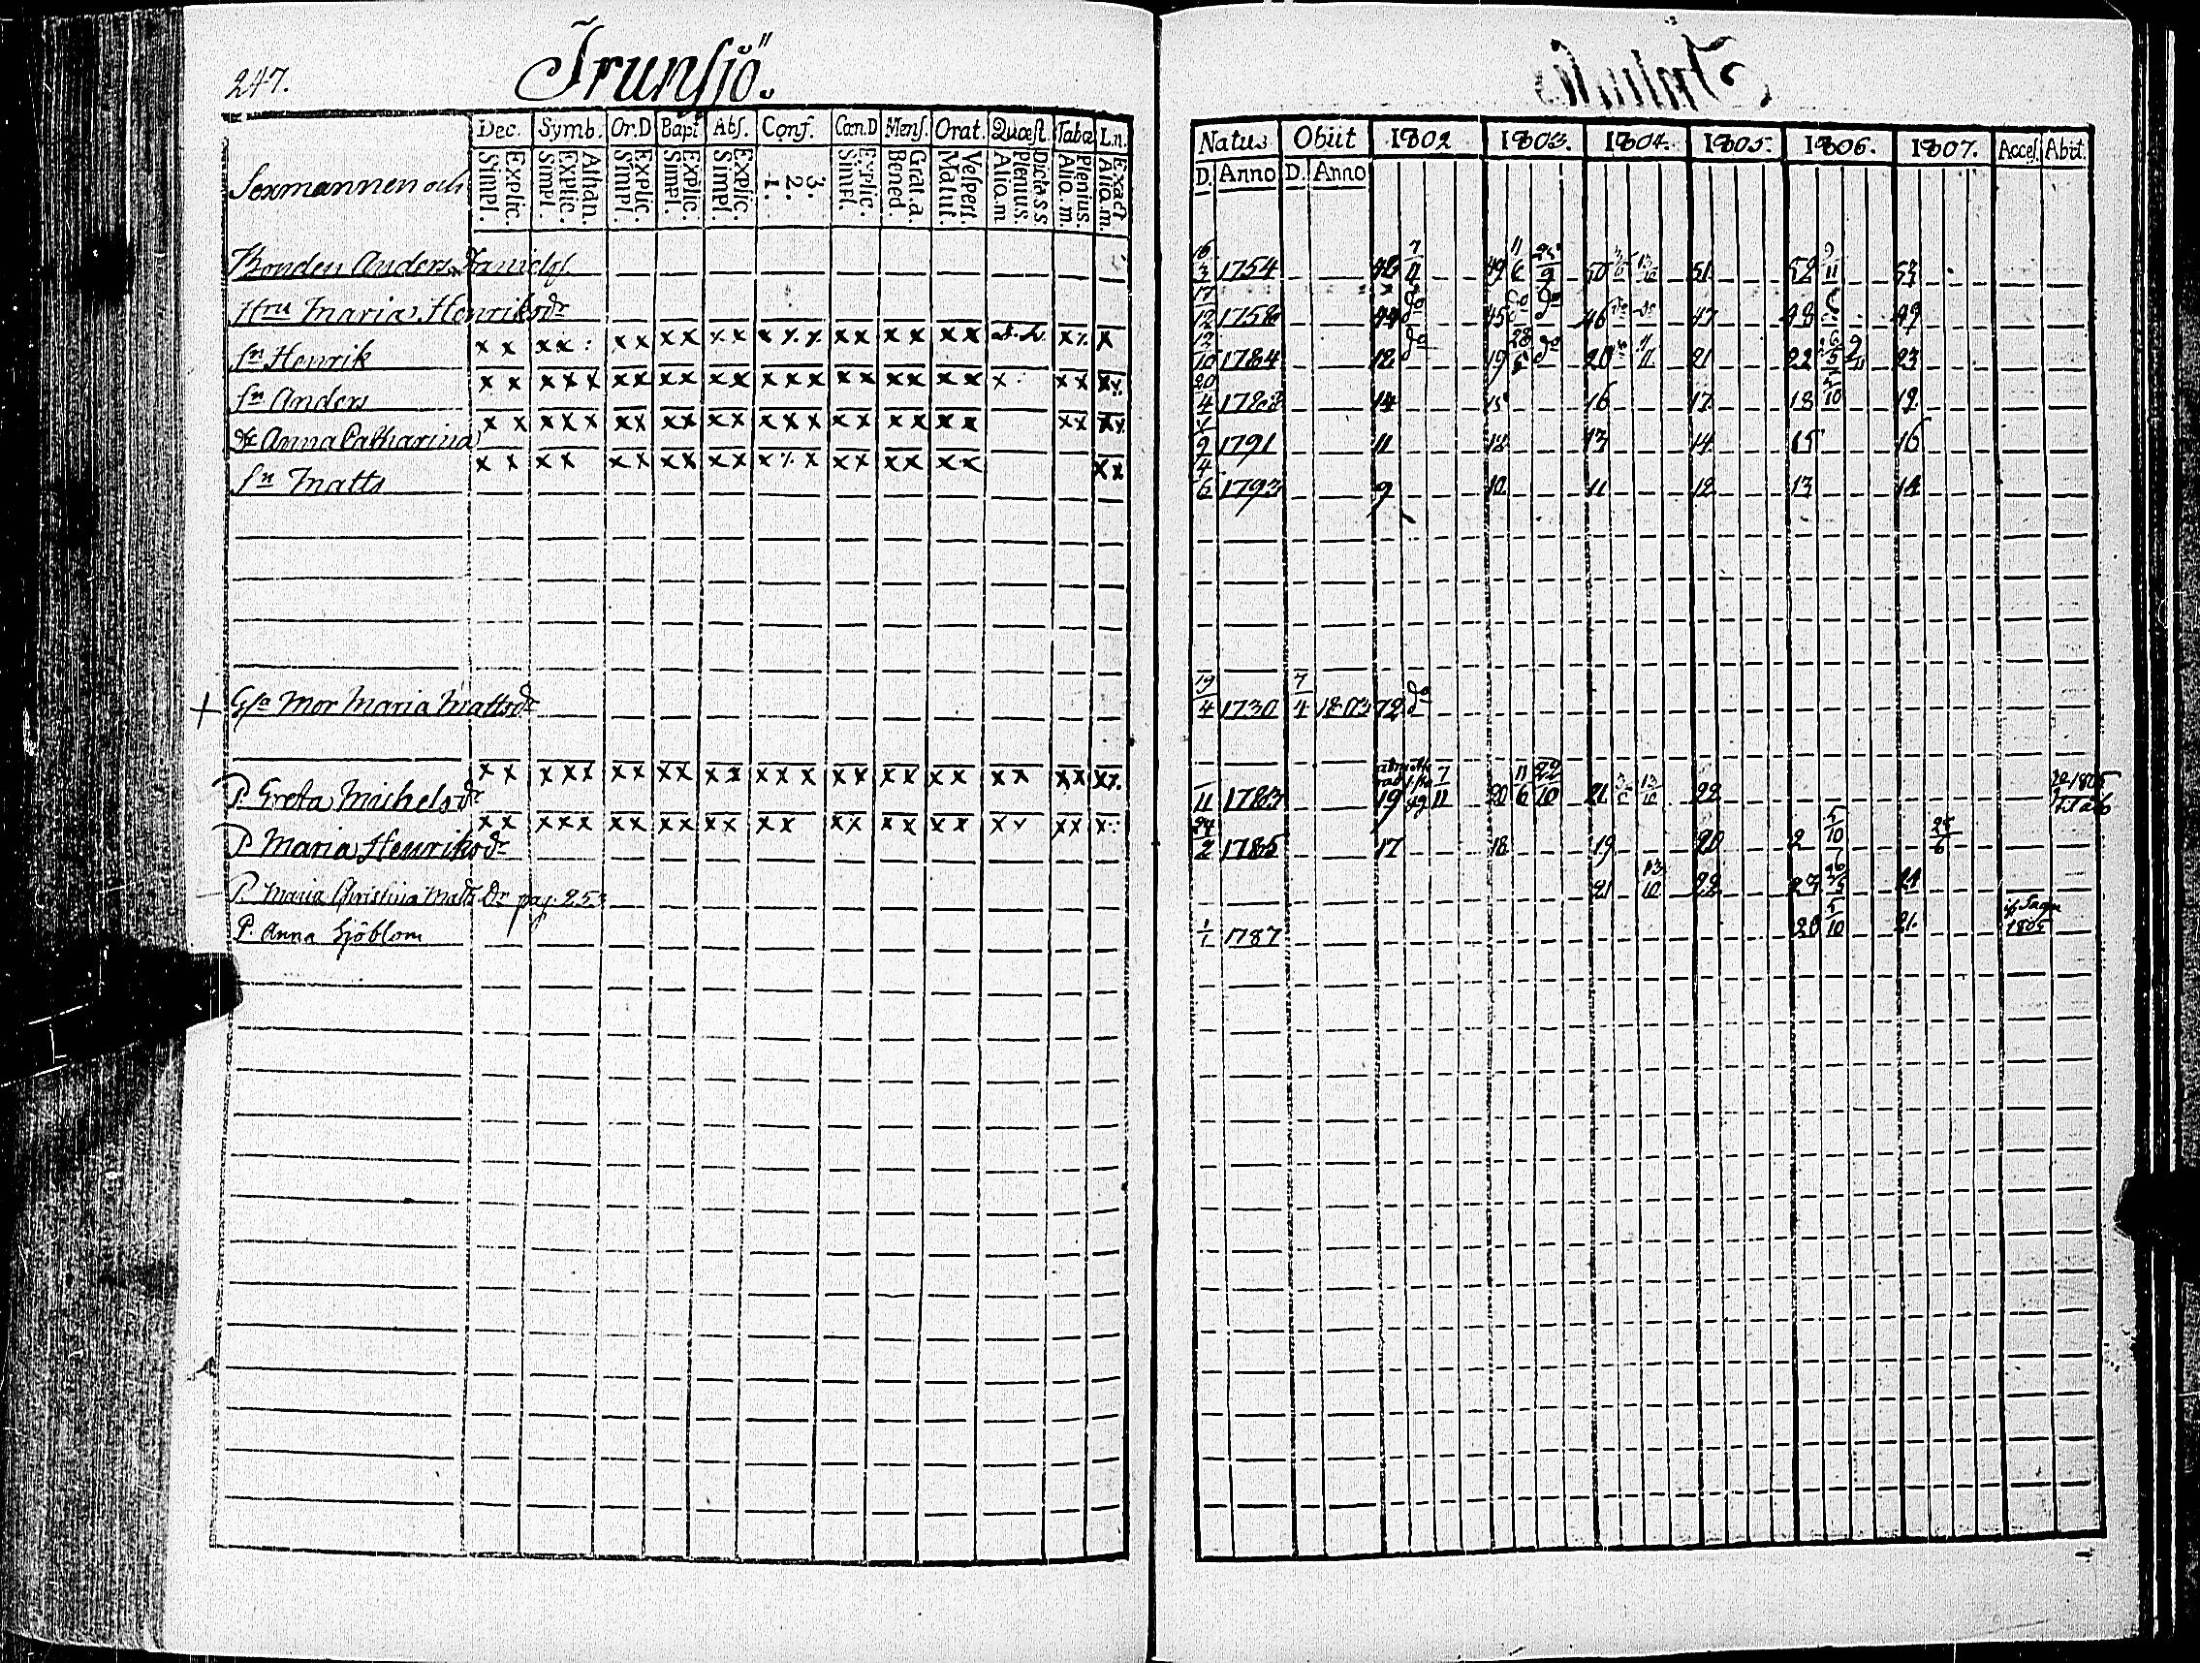 247.
Trunsjö.
Dec. Symb. Or.D Bapt Abs. Conf. Cœn.D Mens. Orat. Quæst. Tabæ L.n.
Sexmannen och
Simpl. Explic. Simpl. Explic. Athan. Simpl. Explic. Simpl. Explic. Simpl. Explic. 1. 2. 3. Simpl. Explic. Bened. Grat.a. Matut. Vespert. Alio.m Plenius. Dicta.s.s Alio.m. Plenius. Alio.m. Exact
Bonden Anders Danielss.
Hru Maria Henriksdr
x x x x : x x x x x x x ⁒ ⁒ x x x x x x x ⁒ x
sn Henrik
x x x x x x x x x x x x x x x x x x x x x x x x x
sn Anders
x x x x x x x x x x x x x x x x x x x x x x x
dr Anna Catharina
x x x x x x x x x x x ⁒ x x x x x x x x x
sn Matts
+ Gla Mor Maria Mattsdr
x x x x x x x x x x x x x x x x x x x x x x x x x
P. Greta Michelsdr
x x x x x x x x x x x x x x x x x x x x x
P Maria Henriksdr
P. Maria Christina Matts Dr pag. 253
P. Anna Sjöblom
Natus Obiit 1802 1803. 1804. 1805. 1806. 1807. Acces. Abit.
D. Anno D. Anno
16/3 1754 7/11 49 11/6 50 51 52 9/11 53
17/12 1758 44 do 45 do do 46 47 48 49
12/10 1784 18 do 19 28/6 do 20 21 22 23
20/4 1788 14 15 16 17 18 5/10 19
9 1791 11 12 13 14 15 16
4/6 1793 9 10 11 12 13 14
19/4 1730 7/4 1803 72 do
11 1783 19 7/11 20 11/6 22/10 21 13/10 22 1805
24/2 1785 17 18 19 20 2 5/10 25/6
21 13/10 22 23 26/5 24
1/1 1787 20 5/10 21. 1805